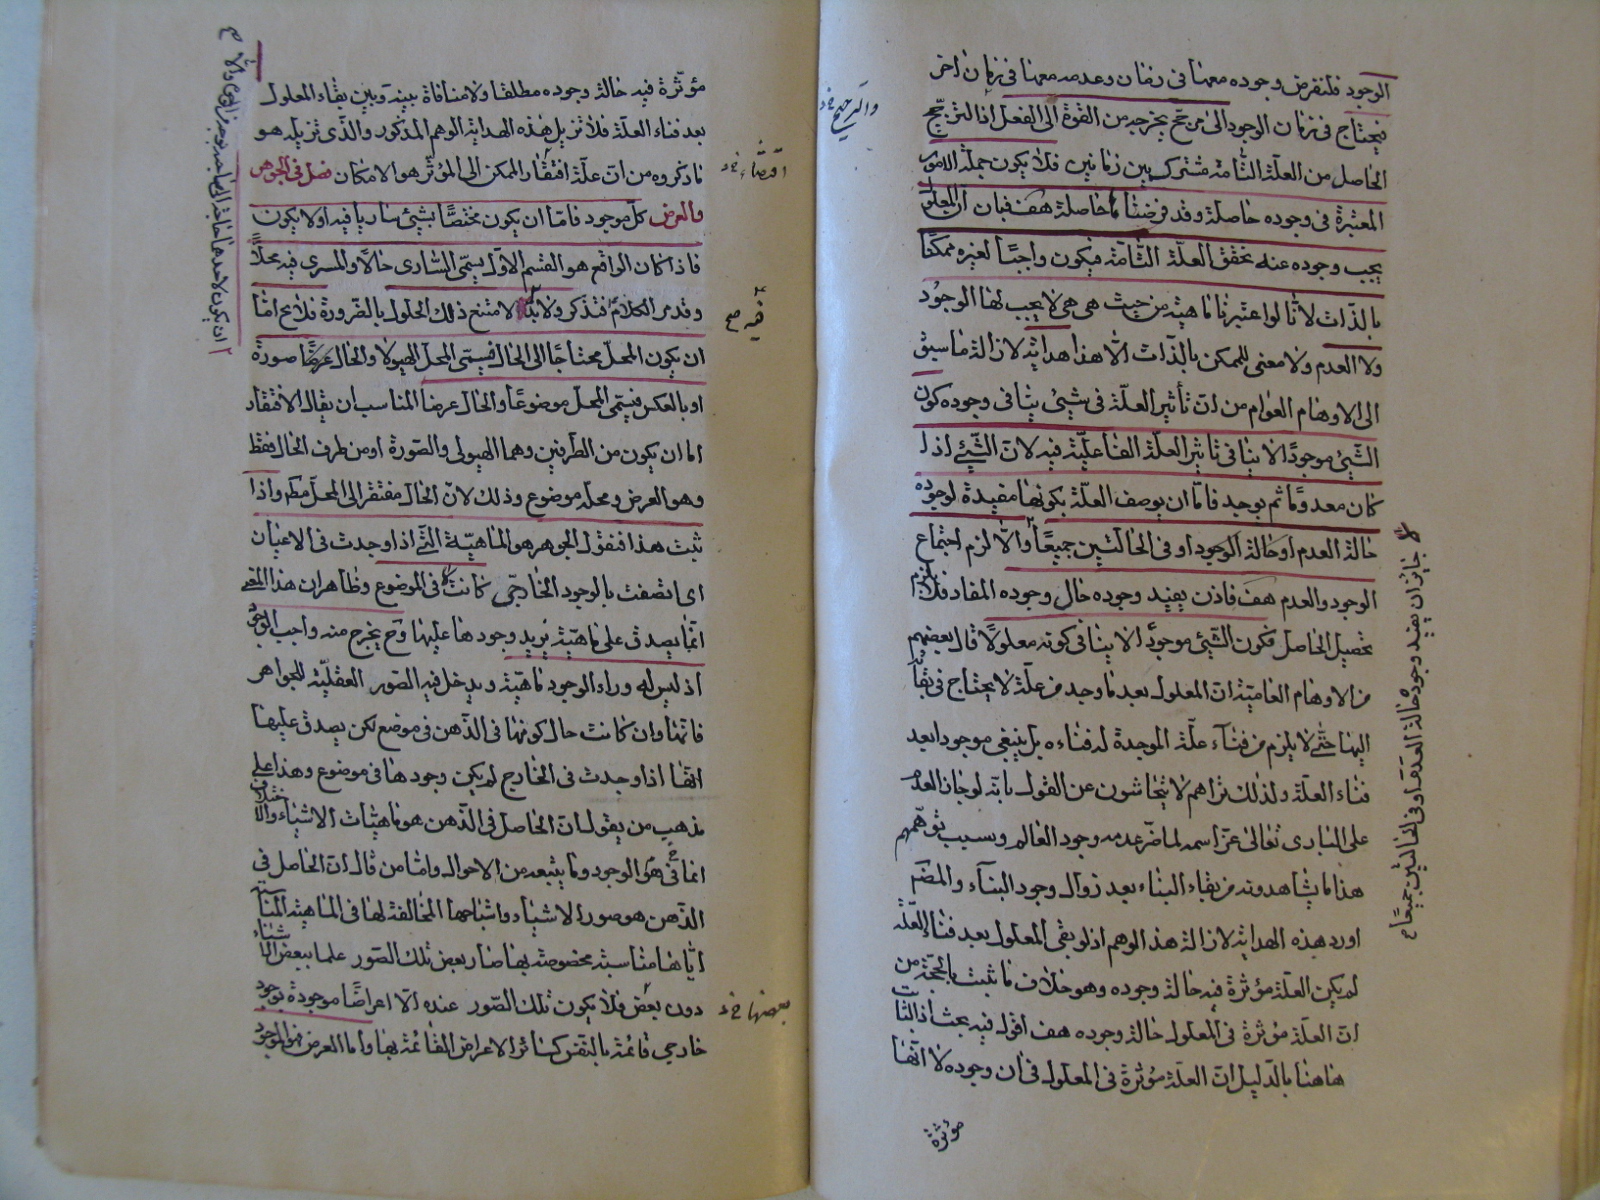 الوجود فلنفرض وجوده معها فى زمان وعدمه معها فى زمان اخر
فيحتاج فى زمان الوجود الى مرجح يخرجه من القوة الى الفعل اذ الترجيح
الحاصل من العلة التامة مشترك بين زمانين فلا يكون جملة الامور
المعتبرة فى وجوده حاصلة وقد فرضناها حاصلة هف فبان ان المعلول
يجب وجوده عند تحقق العلة التامة فيكون واجبا لغيره ممكنا
بالذات لانا لو اعتبرنا ماهيته من حيث هى هى لا يجب لها الوجود
ولا العدم ولا معنى للممكن بالذات الا هذا هداية لازالة ما سبق
الى الاوهام العوام من ان تأثير العلة فى شيئ ينافى وجوده كون
الشيئ موجودا لا ينافى تاثير العلة الفاعلية فيه لان الشيئ اذا
كان معدوما ثم يوجد فاما ان يوصف العلة بكونها مفيدة لوجوده
حالة العدم او حالة الوجود او فى الحالتين جميعا والا لزم اجتماع
الوجود والعدم هف فاذن يفيد وجوده حال وجوده المفاد فلا يلزم
تحصيل الحاصل فكون الشيئ موجودا لا ينافى كونه معلولا قال بعضهم
من الاوهام العامية ان المعلول بعد ما وجد من علة لا يحتاج فى بقائه
اليها حتى لا يلزم من فناء علة الموجدة له فناءه بل ينبغى موجودا بعد
فناء العلة ولذلك تراهم لا يتحاشون عن القول بانه لو جاز العدم
على البارى تعالى عز اسمه لما ضر عدمه وجود العالم وسبب توهمهم
هذا ما يشاهدونه من بقاء البناء بعد زوال وجود البناء والمصنف
اورد هذه الهداية لازالة هذ الوهم اذ لو بقى المعلول بعد فناء العلة
لم يكن العلة مؤثرة فيه حالة وجوده وهو خلاف ما ثبت بالحجة من
ان العلة مؤثرة فى المعلول حالة وجوده هف اقول فيه بحث اذ الثابت
هاهنا بالدليل ان العلة مؤثرة فى المعلول فى ان وجوده لا انها
مؤثرة
والترجيح خ
لا جائز ان يفيد وجوده حالة العدم او فى الحالتين جميعا
مؤثرة فيه حالة وجوده مطلقا ولا منافاة بينه وبين بقاء المعلول
بعد فناء العلة فلا تزيل هذه الهداية الوهم المذكور والذى تزيله هو
ما ذكروه من ان علة افتقار الممكن الى المؤثر هو الامكان فصل فى الجوهر
والعرض كل موجود فاما ان يكون مختصا بشيئ ساريا فيه او لا يكون
فاذا كان الواقع هو القسم الاول يسمى السارى حالا والمسرى فيه محلا
وقد مر الكلام فتذكر ولا بد لامتنع ذلك الحلول بالضرورة فلا يخ اما
ان يكون المحل محتاجا الى الحال فيسمى المحل الهيولا والحال صورة
او بالعكس فيسمى المحل موضوعا والحال عرضا المناسب ان يقال الافتقار
اما ان يكون من الطرفين وهما الهيولى والصورة او من طرف الحال فقط
وهو العرض ومحله موضوع وذلك لان الحال مفتقر الى المحل مطم واذا
ثبت هذا فنقول الجوهر هو الماهية التى اذا وجدت فى الاعيان
اى اتصفت بالوجود الخارجى كانت لا فى الموضوع وظاهر ان هذا المعنى
انما يصدق على ماهية يزيد وجودها عليها وح يخرج منه واجب الوجود
اذ ليس له وراء الوجود ماهية ويدخل فيه الصور العقلية للجواهر
فانها وان كانت حال كونها فى الذهن فى موضع لكن يصدق عليها
انها اذا وجدت فى الخارج لم يكن وجودها فى موضوع وهذا على
مذهب من يقول ان الحاصل فى الذهن هو ماهيات الاشياء والاختلاف
انما فى الوجود وما يتبعه من الاحوال واما من قال ان الحاصل فى
الذهن هو صور الاشياء واشباحها المخالفة لها فى الماهية المناسبة
اياها مناسبة مخصوصة بها صار بعض تلك الصور علما ببعض الاشياء
دون بعض فلا يكون تلك الصور عنده الا اعراضا موجودة بوجود
خارجى قائمة بالنفس كسائر الاعراض القائمة بها واما العرض فهو الموجود
بعضها خ